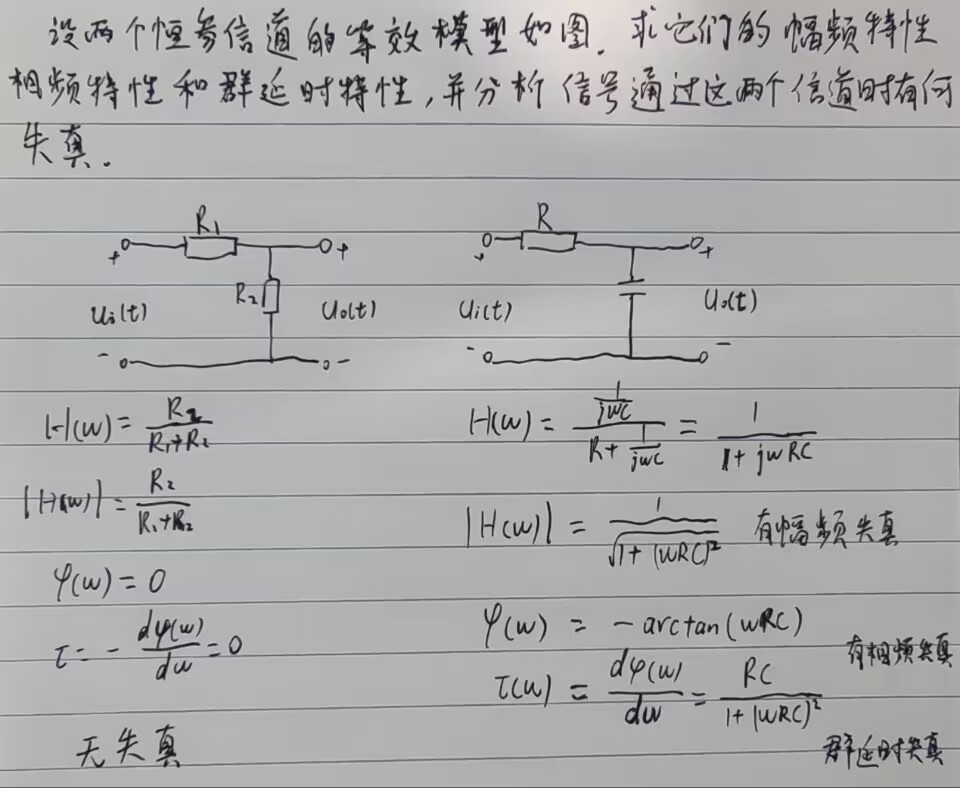 设两个恒参信道的等效模型如图. 求它们的幅频特性
相频特性和群延时特性, 并分析信号通过这两个信道时有何
失真.
R₁
R₂
+ +
Ui(t) Uo(t)
- -
R
+ +
Ui(t) Uo(t)
- -
H(w) = R₂/(R₁+R₂)
|H(w)| = R₂/(R₁+R₂)
φ(w) = 0
τ = - dφ(w)/dw = 0
无失真
H(w) = (1/jwC)/(R + 1/jwC) = 1/(1 + jwRC)
|H(w)| = 1/√(1 + (wRC)²) 有幅频失真
φ(w) = - arctan(wRC)
有相频失真
τ(w) = dφ(w)/dw = RC/(1 + (wRC)²)
群延时失真